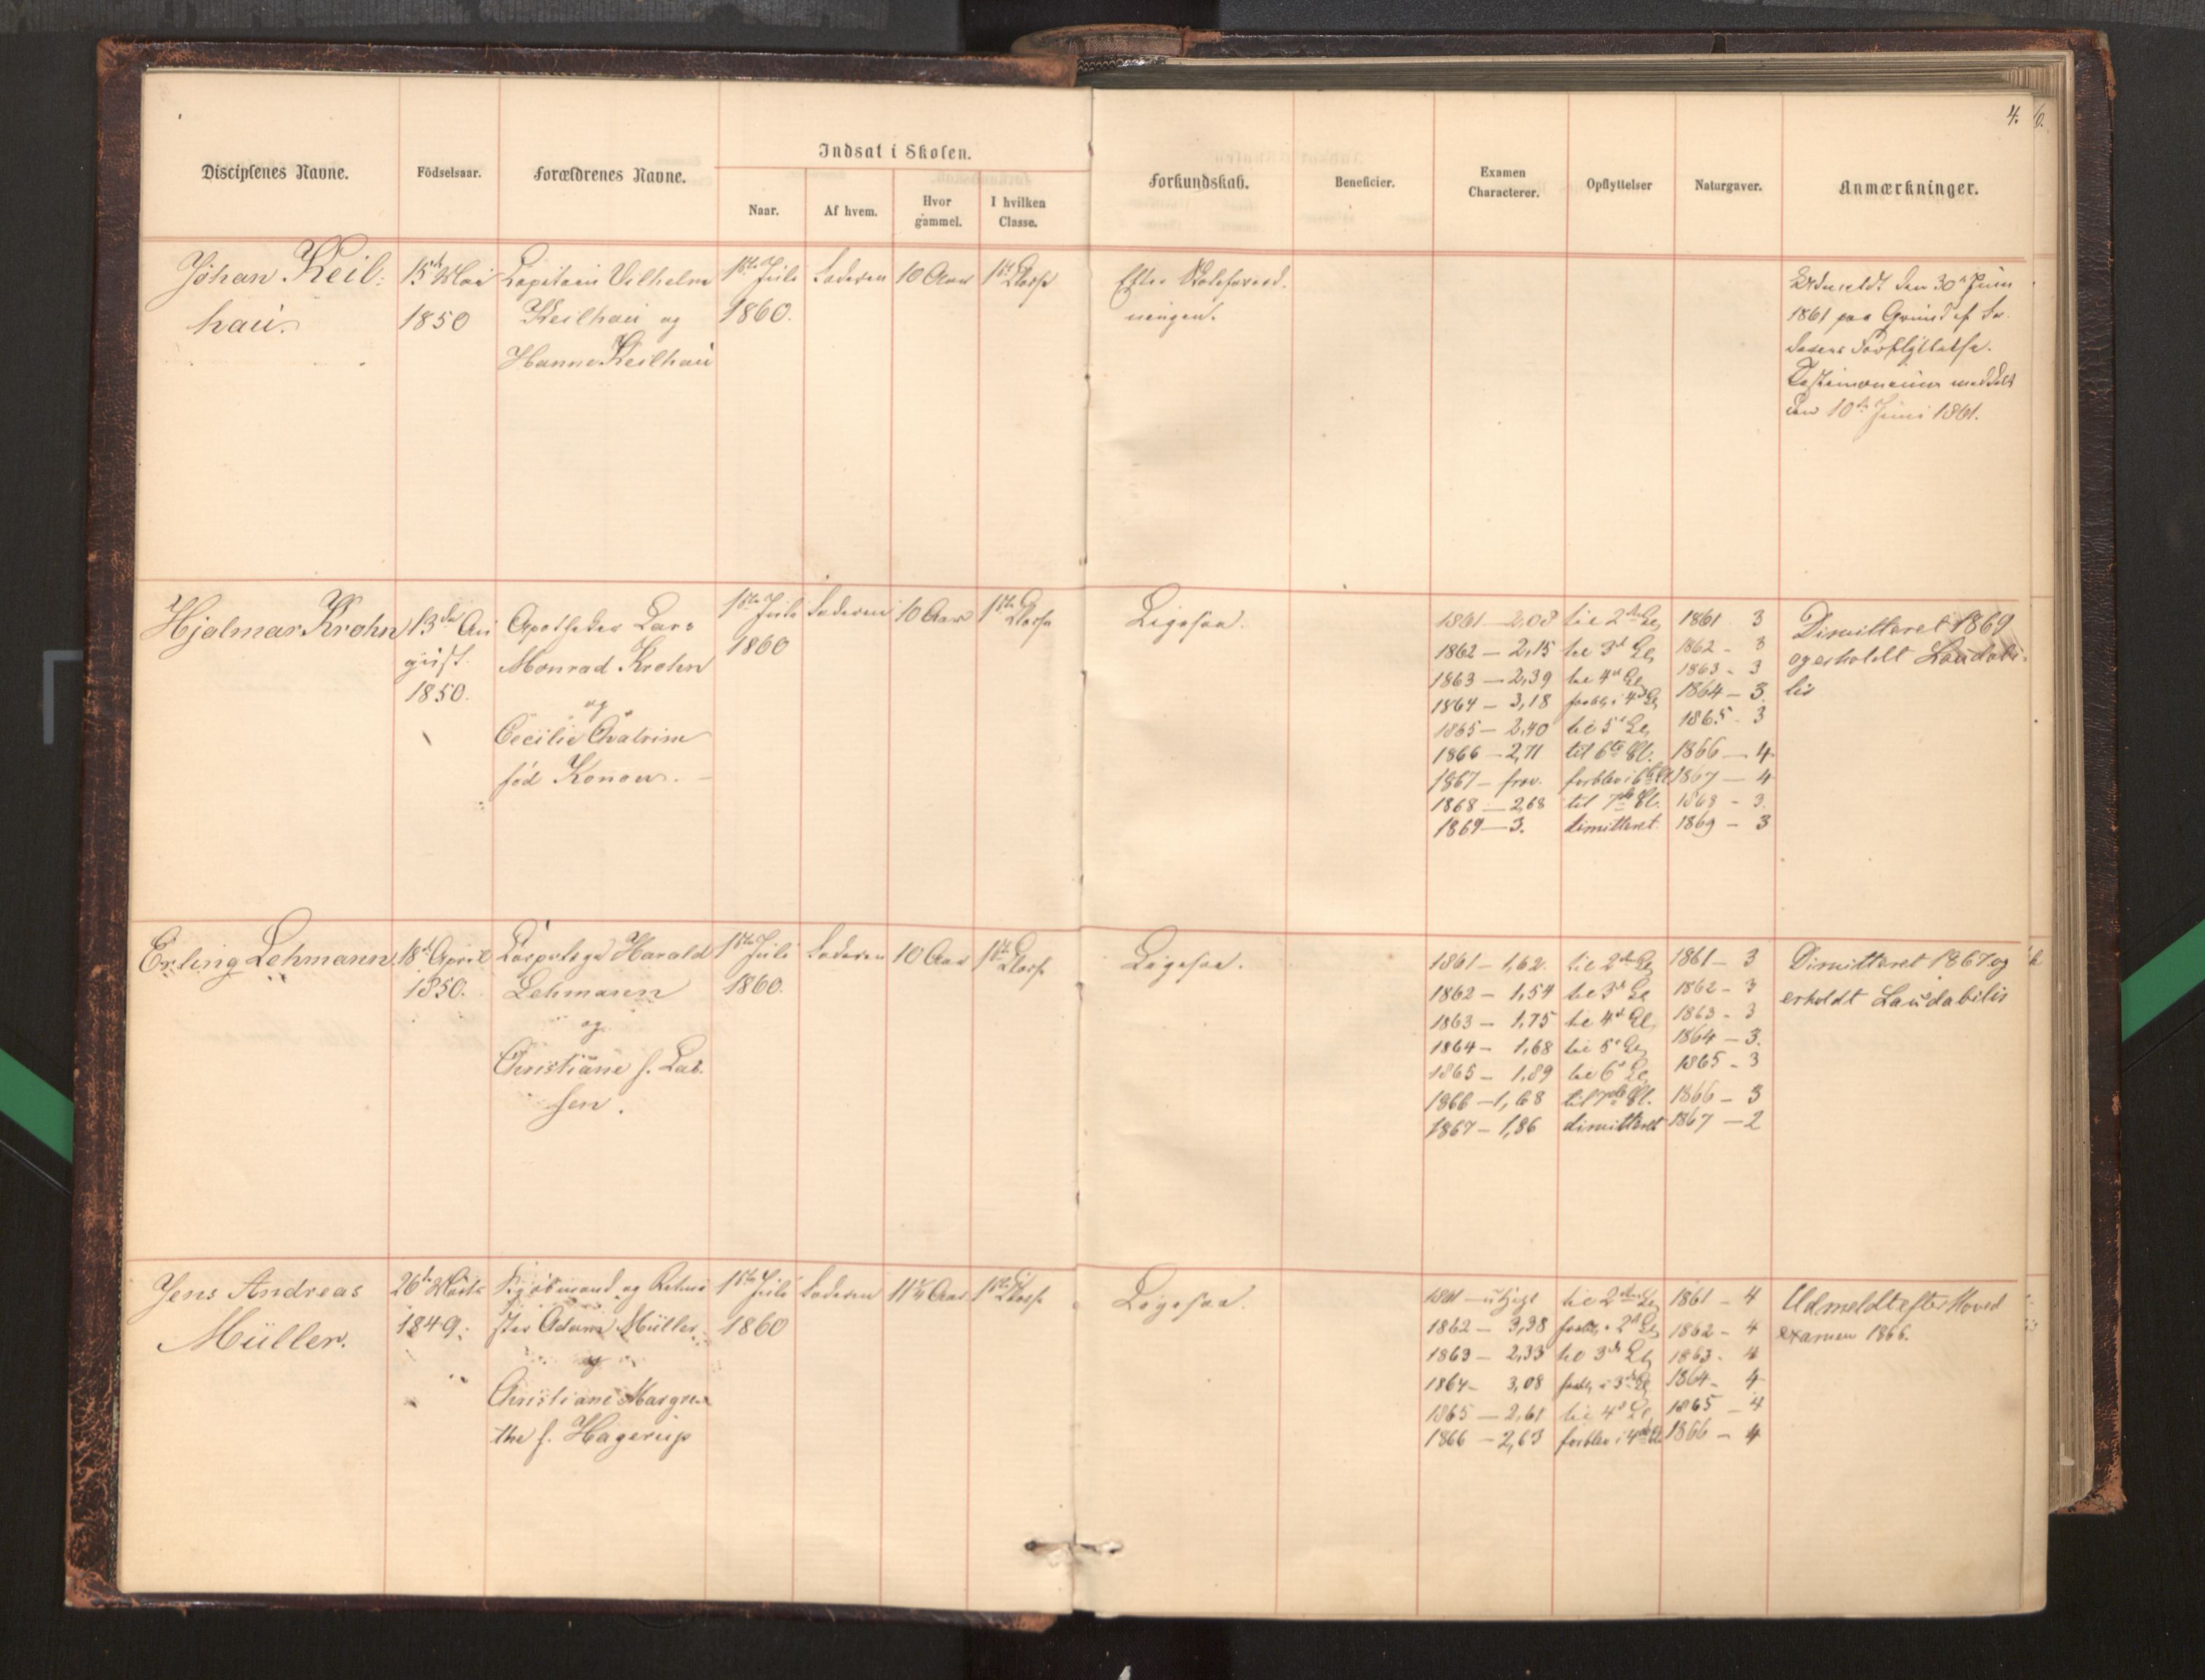 4.
Indsat i Skolen.
Disciplenes Navne.
Födselsaar.
Forældrenes Navne.
Naar.
Af hvem.
Hvor
gammel.
I hvilken
Classe.
Forkundskab.
Beneficier.
Examen
Characterer.
Opflyttelser
Naturgaver.
Anmærkninger.
Johan Keil-
hau.
15de Mai
1850
Capitain Vilhelm
Keilhau og
Hanne Keilhau
1ste Juli
1860.
Faderen
10 Aar
1ste Classe
Efter Skoleforord-
ningen.
Udmeldt den 30te Juni
1861 paa Grund af Fa-
derens Forflyttelse.
Testimonium meddelt
den 10de Juni 1861.
Hjalmar Krohn
13de Au
gust.
1850.
Apotheker Lars
Monrad Krohn
og
Cecilie Chatrine
fød Konow.
1ste Juli
1860
Faderen
10 Aar
1ste Classe
Ligesaa.
1861 — 2,08 til 2den Cl. 1861 3
1862 — 2,15 til 3d Cl. 1862 - 3
1863 — 2,39 til 4d Cl. 1863 - 3
1864 — 3,18 forbl. i 4d Cl. 1864 — 3.
1865 — 2,40 til 5t Cl. 1865 - 3
1866 — 2,71 til 6te Cl. 1866 — 4
1867 — frav. forblev i 6te Cl. 1867 — 4
1868 — 2,68 til 7de Cl. 1868 - 3.
1869 — 3. dimitteret. 1869 - 3
Dimitteret 1869
og erholdt Laudabi-
lis
Erling Lehmann
18d April
1850.
Corpslæge Harald
Lehmann
og
Christiane f. Lar-
sen.
1ste Juli
1860.
Faderen
10 Aar
1ste Classe
Ligesaa.
1861 — 1,62. til 2den Cl. 1861 — 3
1862 — 1,54 til 3d Cl. 1862 - 3
1863 — 1,75 til 4d Cl. 1863 - 3
1864 — 1,68 til 5t Cl. 1864 — 3.
1865 — 1,89 til 6t Cl. 1865 - 3
1866 — 1,68 til 7de Cl. 1866 — 3
1867 — 1,86 dimitteret 1867 — 2
Dimitteret 1867 og
erholdt Laudabilis
Jens Andreas
Müller.
26de Marts
1849.
Kjøbmand og
Adam Müller.
og
Christiane Margre-
the f. Hagerup
1ste Juli
1860
Faderen
11¼ Aar
1ste Classe
Ligesaa.
1861 — til 2den Cl. 1861 — 4
1862 — 3,38 forbl. i 2d Cl. 1862 — 4
1863 — 2,33 til 3de Cl. 1863 - 4
1864 — 3,08 forbl. i 3de Cl. 1864 - 4
1865 — 2,61 til 4d Cl. 1865 — 4
1866 — 2,63 forblev i 4de Cl. 1866 — 4
Udmeldt efter Hoved
examen 1866.